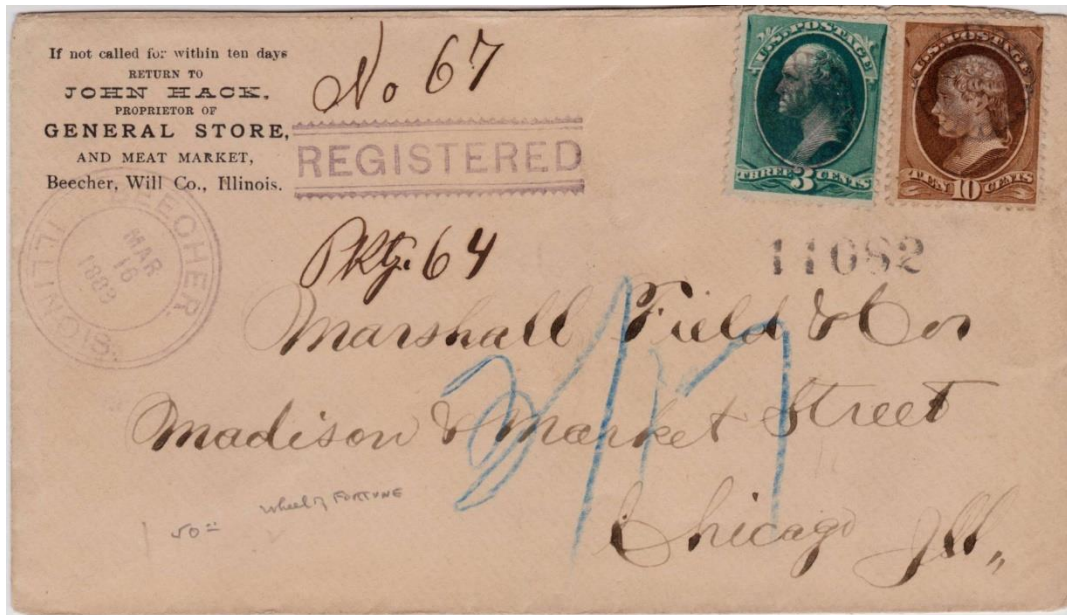 If not called for within ten days
RETURN TO
JOHN HACK,
PROPRIETOR OF
GENERAL STORE,
AND MEAT MARKET,
Beecher, Will Co., Illinois.
No 67
REGISTERED
U.S. POSTAGE
THREE 3 CENTS
U.S. POSTAGE
TEN 10 CENTS
BEECHER
MAR
16
ILLINOIS
Pkg. 64
11082
Marshall Field & Co
Madison & Market Street
Chicago Ill,,
wheel of FORTUNE
50